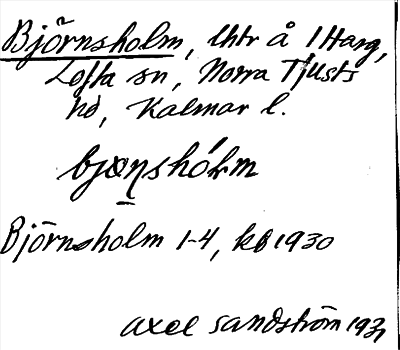 Björnsholm, Uhtr å 1 Harg,
Lofta sn, Norra Tjusts
hd, Kalmar l.
bjœṇshólm
Björnsholm 1-4, kb 1930
Axel Sandström 193